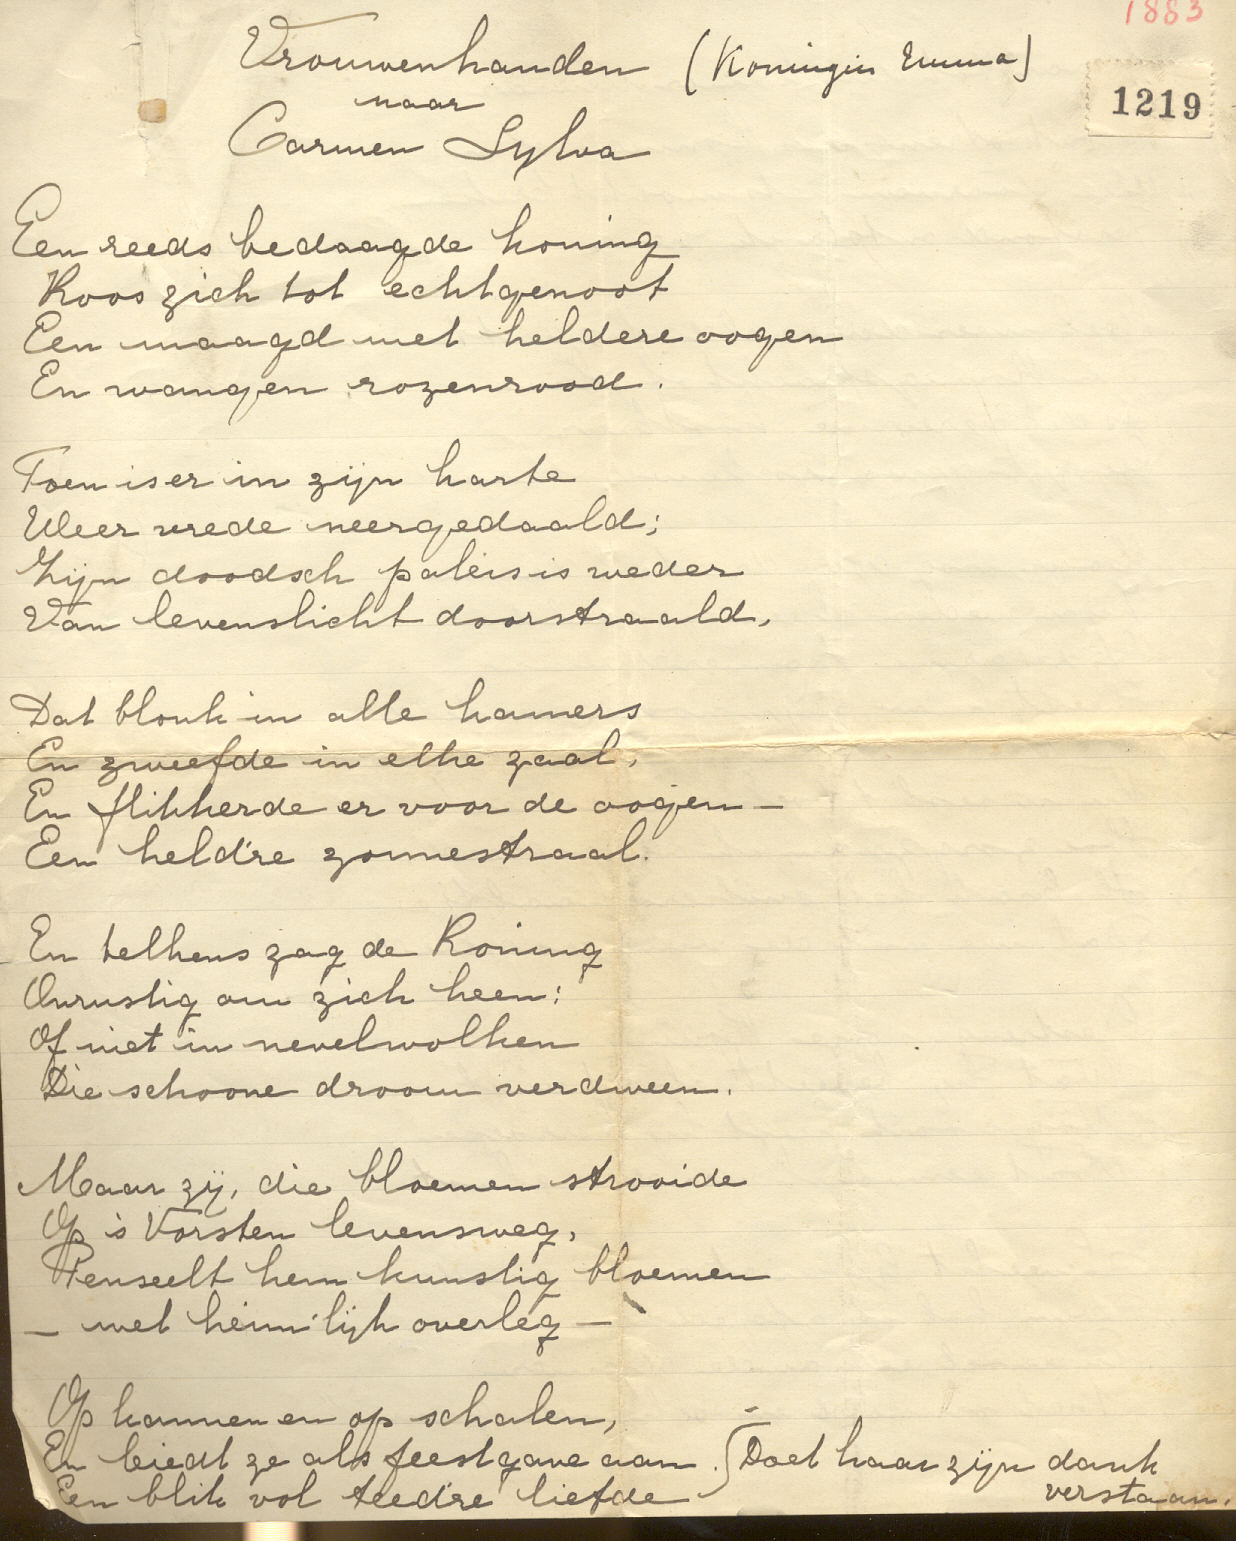 1883
Vrouwenhanden (Koningin Emma)
1219
naar
Carmen Sylva
Een reeds bedaagde koning
Koos zich tot echtgenoot
Een maagd met heldere oogen
En wangen rozenrood.
Toen is er in zijn harte
Weer vrede neergedaald;
Zijn doodsch paleis is weder
Van levenslicht doorstraald.
Dat blonk in alle kamers
En zweefde in elke zaal,
En flikkerde er voor de oogen —
Een held're zonnestraal.
En telkens zag de Koning
Onrustig om zich heen:
Of niet in nevelwolken
Die schoone droom verdween.
Maar zij, die bloemen strooide
Op 's Vorsten levensweg,
Penseelt hem kunstig bloemen
— met heim'lijk overleg —
Op kannen en op schalen,
En biedt ze als feestgave aan.
Een blik vol teed're liefde
Doet haar zijn dank
verstaan.